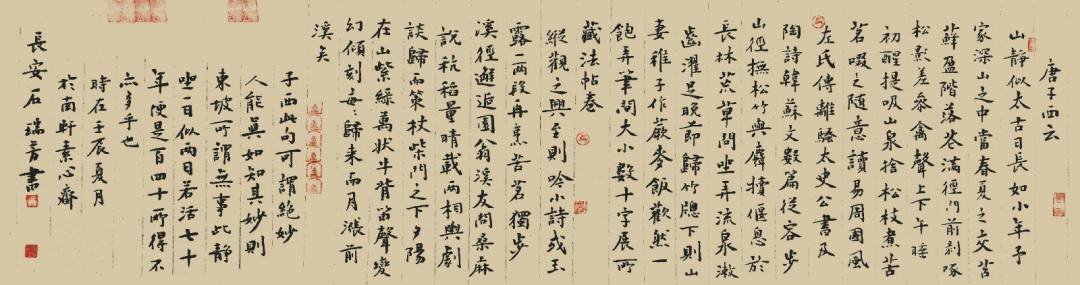 唐子西云
山靜似太古日長如小年予
家深山之中當春夏之交苔
蘚盈階落花滿徑門前剥啄
松影差參禽聲上下午睡
初醒提吸山泉捨松枝煮苦
茗啜之随意讀易周國風
左氏傳離騷太史公書及
陶詩韓蘇文數篇從容步
山徑撫松竹與麛犢偃息於
長林荒草間坐弄流泉漱
齒濯足晚節歸竹牕下則山
妻稚子作蕨麥飯歡然一
飽弄筆間大小數十字展所
藏法帖卷
縱觀之興至則吟小詩或玉
露一兩段再烹苦茗獨步
溪徑邂逅園翁溪友問桑麻
說秔稻量晴載雨相與劇
談歸而策杖柴門之下夕陽
在山紫綠萬狀牛背笛聲變
幻傾刻每々歸來而月漲前
溪矣
子西此句可謂絕妙
人能真如知其妙則
東坡所謂無事此靜
坐一日似兩日若活七十
年便是百四十所得不
亦多乎也
時在壬辰夏月
於南軒素心齋
長安石瑞芳書